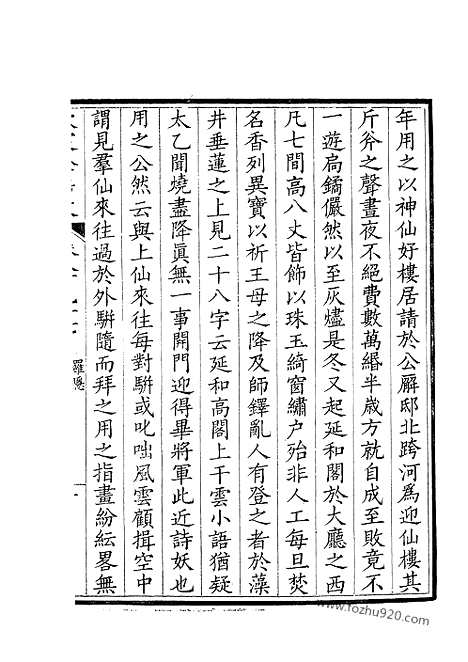 年用之以神仙好樓居請於公廨邸北跨河爲迎仙樓其
斤斧之聲晝夜不絕費數萬緡半歳方就自成至敗竟不
一遊扃鐍儼然以至灰燼是冬又起延和閣於大廳之西
凡七間高八丈皆飾以珠玉綺窗繡户殆非人工每旦焚
名香列異寶以祈王母之降及師鐸亂人有登之者於藻
井垂蓮之上見二十八字云延和高閣上干雲小語猶疑
太乙聞燒盡降眞無一事開門迎得畢將軍此近詩妖也
用之公然云與上仙來往每對駢或叱咄風雲顧揖空中
謂見羣仙來往過於外駢隨而拜之用之指畫紛紜畧無
羅隱
www.fozhu920.com